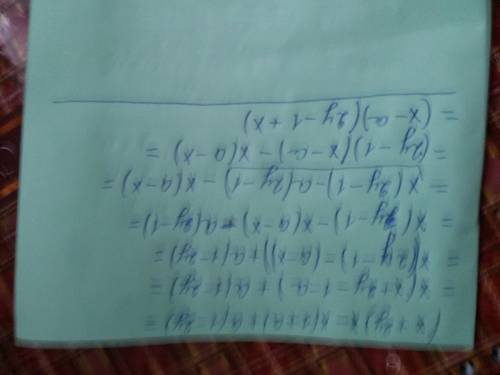 (x+2y)x-x(1+a)+a(1-2y)=
= x(x+2y-1-a)+a(1-2y)=
= x((2y-1)-(a-x))+a(1-2y)=
= x(2y-1)-x(a-x)-a(2y-1)=
= x(2y-1)-a(2y-1)-x(a-x)=
= (2y-1)(x-a)-x(a-x)=
= (x-a)(2y-1+x)